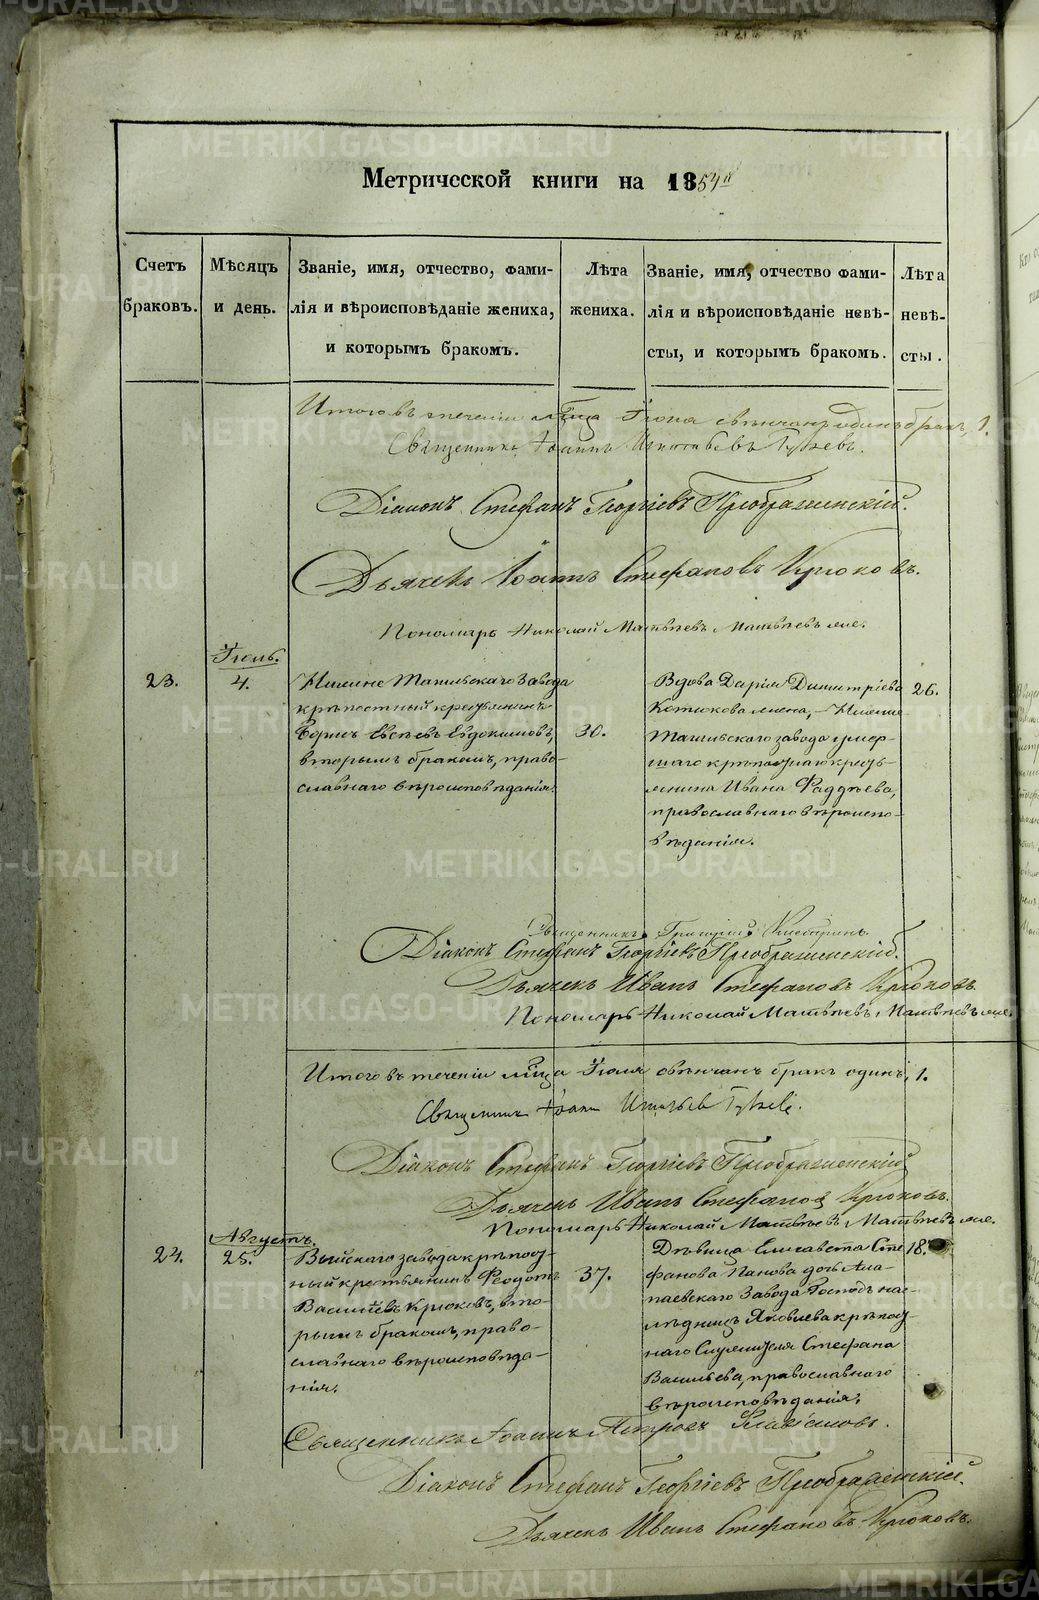 Метрической книги на 1854й
Счетъ браковъ.
Мѣсяцъ и день.
Званіе, имя, отчество, фами-
лія и вѣроисповѣданіе жениха,
и которымъ бракомъ.
Лѣта жениха.
Званіе, имя, отчество фами-
лія и вѣроисповѣданіе невѣ-
сты, и которымъ бракомъ.
Лѣта невѣ-
сты.
Итого въ теченіи мѣсяца Іюня обвѣнчанъ одинъ бракъ, 1.
Священникъ Іоаннъ Игнатьевъ
Діаконъ Стефанъ Георгіевъ Преображенскій.
Дьячекъ Іоаннъ Стефановъ Крюковъ.
Пономарь Николай Матвѣевъ Матвѣевыхъ
Іюль.
23.
4.
Нижне Тагильскаго Завода
крѣпостный крестьянинъ
Борис Евсѣевъ Евдокимовъ,
вторымъ бракомъ, право-
славнаго вѣроисповѣданія.
30.
Вдова Дарья Димитріева
жена, Нижне
Тагильскаго завода умер-
шаго крѣпостнаго кресть-
янина Ивана Фаддѣева,
православнаго вѣроиспо-
вѣданія.
26.
Священникъ Григорій
Діаконъ Стефанъ Георгіевъ Преображенскій.
Дьячекъ Иванъ Стефановъ Крюковъ
Пономарь Николай Матвѣевъ
Итого въ теченіи мѣсяца Іюля обвѣнчанъ бракъ одинъ, 1.
Священникъ Іоаннъ Игнатьевъ
Діаконъ Стефанъ Георгіевъ Преображенскій
Дьячекъ Иванъ Стефановъ Крюковъ.
Пономарь Николай Матвѣевъ
Августъ.
24.
25.
Выйскаго завода крѣпост-
ный крестьянинъ Феодотъ
Васильевъ Крюковъ, вто-
рымъ бракомъ, право-
славнаго вѣроисповѣда-
нія.
37.
Дѣвица Елисавета Сте-
фанова Панова дочь Ала-
паевскаго Завода Господъ нас-
лѣдницъ Яковлева крѣпост-
наго Служителя Стефана
Васильева, православнаго
вѣроисповѣданія.
18.
Священникъ Іоаннъ Петровъ
Діаконъ Стефанъ Георгіевъ Преображенскій.
Дьячекъ Иванъ Стефановъ Крюковъ.
METRIKI.GASO-URAL.RU